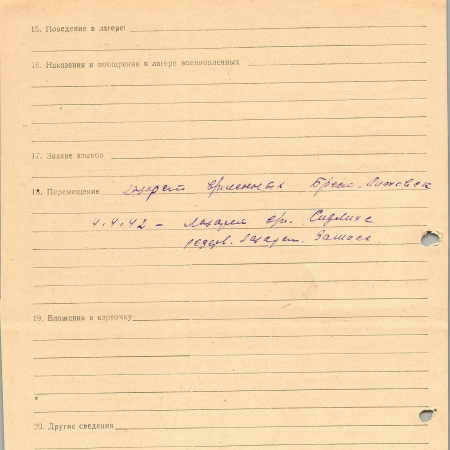 15. Поведение в лагере:
16. Наказания и поощрения в лагере военнопленных
17. Знание языков
18. Перемещения лазарет
4.4.42 – лазарет Сидлице
резерв. лазарет
19. Вложения в карточку
20. Другие сведения